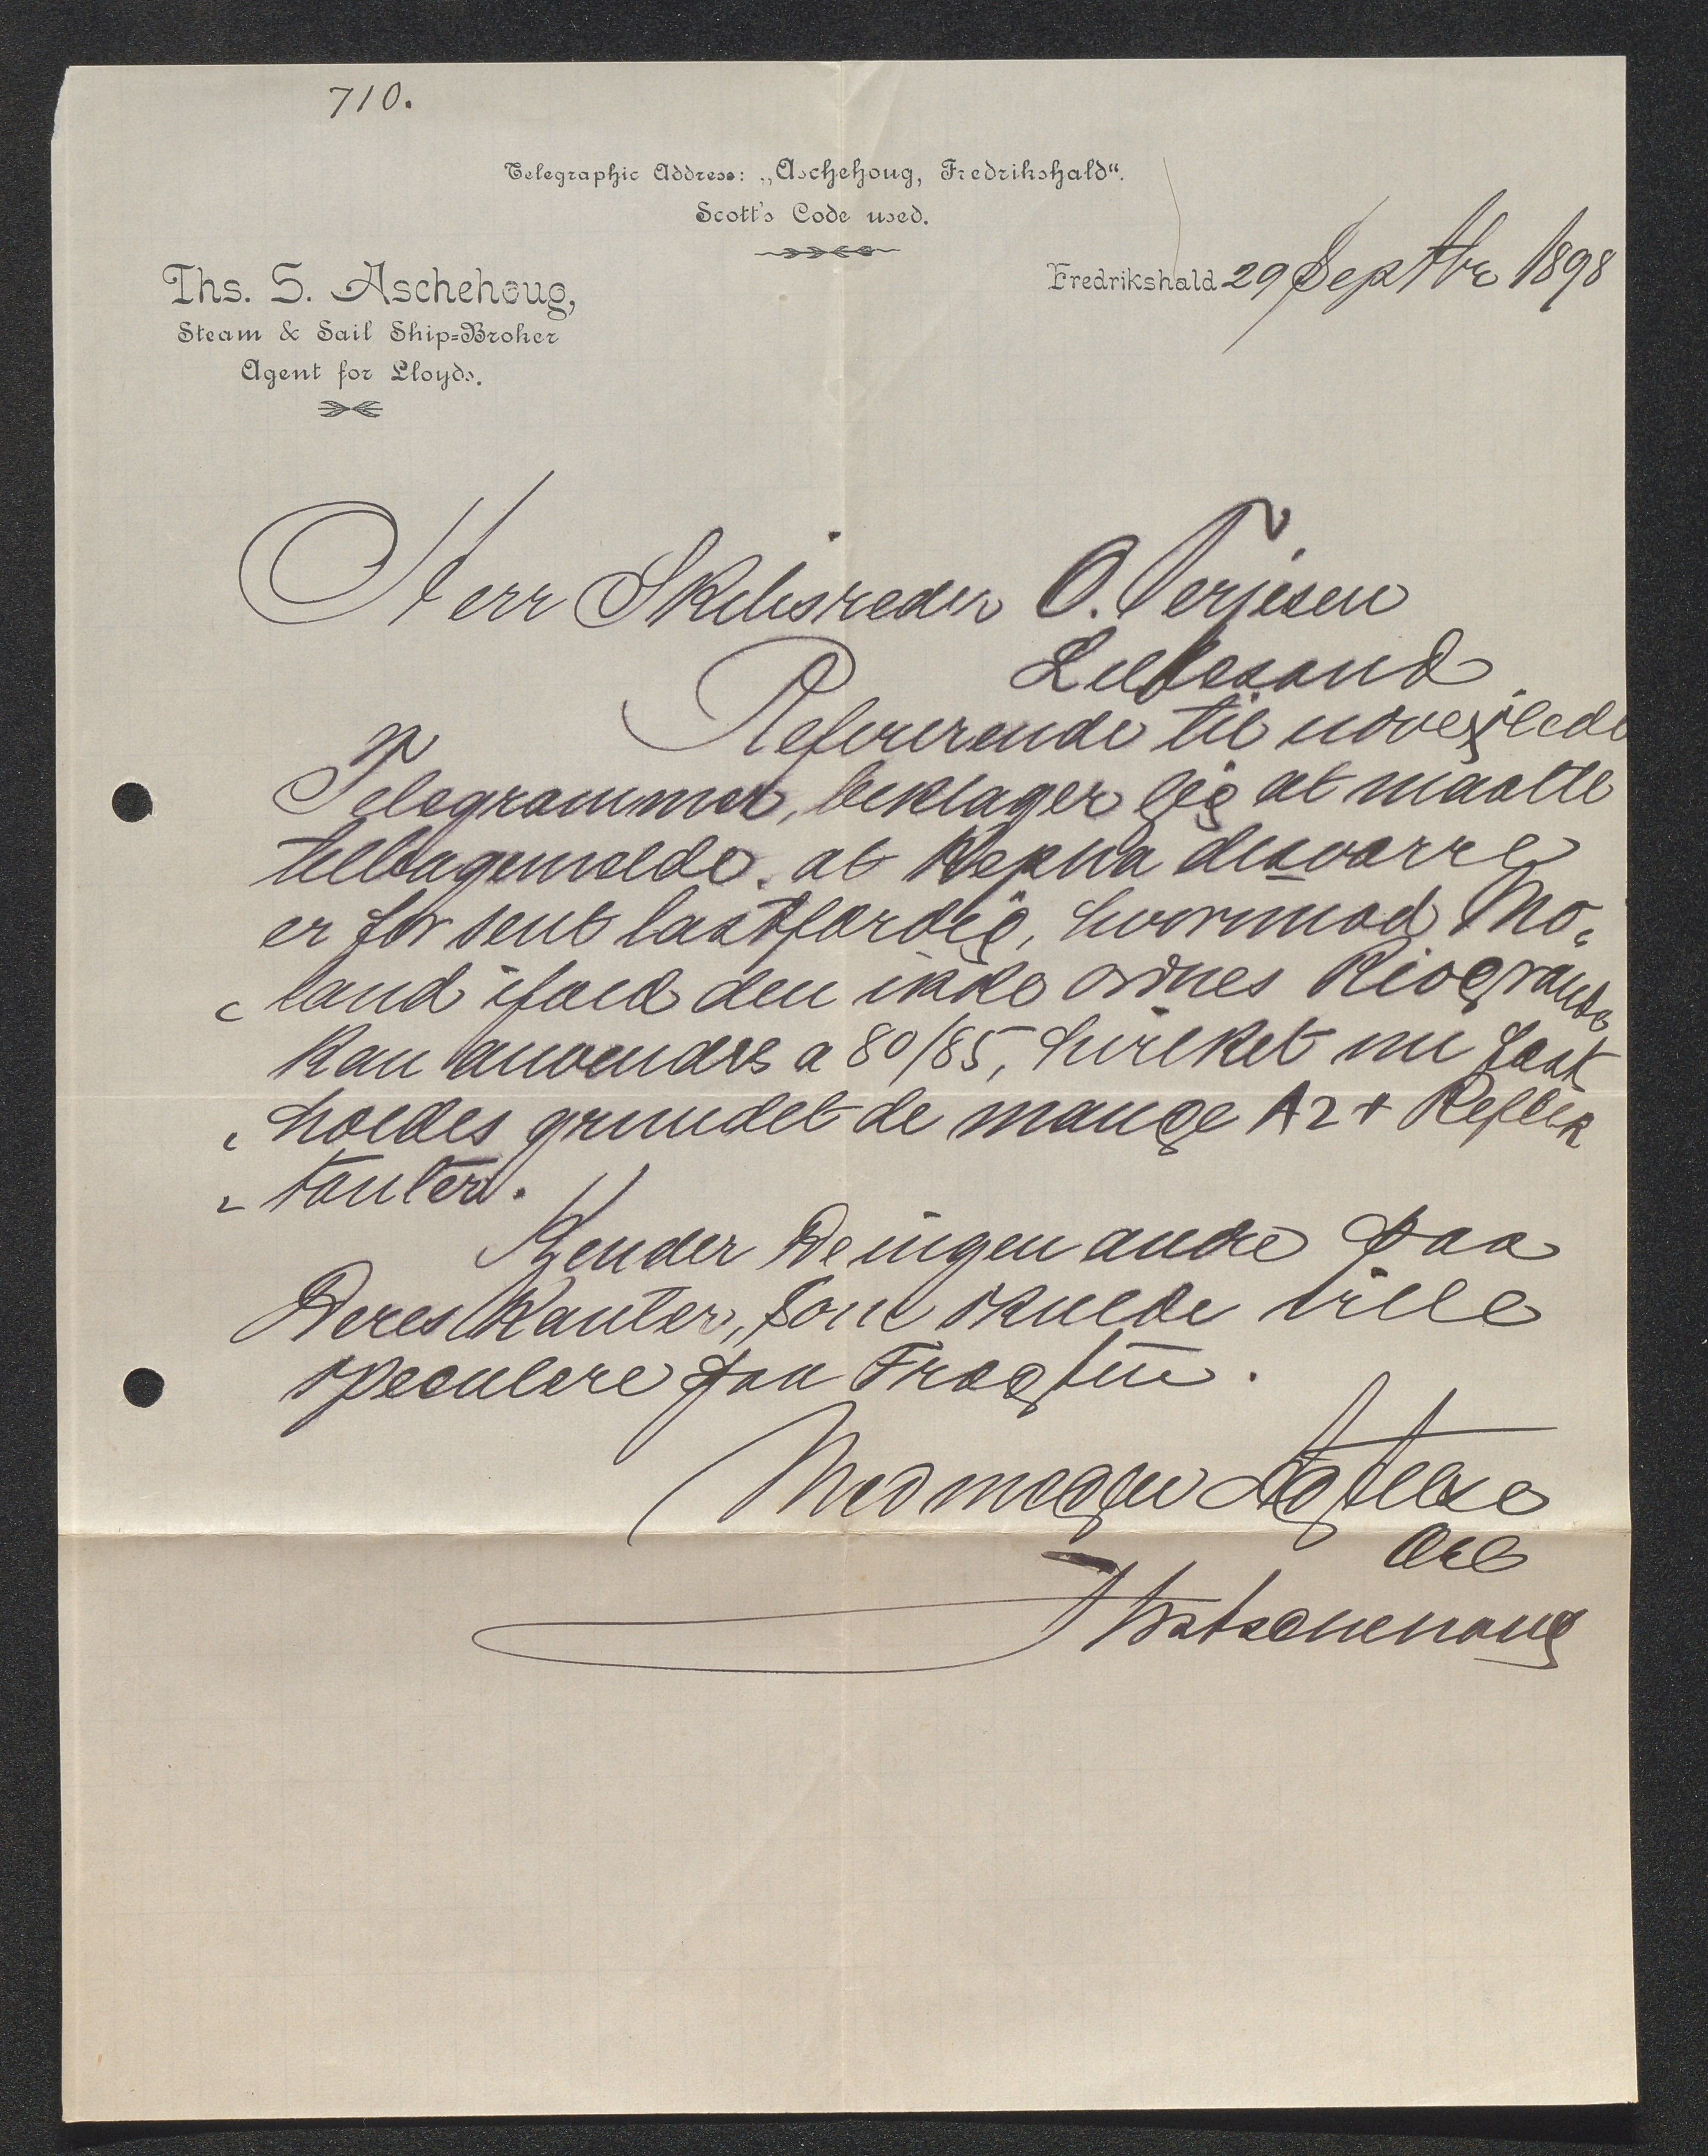 710.
Telegraphic Address: „Aschehoug, Fredrikshald“.
Scott's Code used.
Ths. S. Aschehoug,
Steam & Sail Ship=Broker
Agent for Lloyds.
Fredrikshald 29 Septbr 1898
Herr Skibsreder O. Terjesen
Lillesand
Refererende til
Telegrammer, beklager jeg at maatte
tilbagemelde, at Repna desværre
er for sent lastfærdig, hvorimod Mo-
land ifald den ikke ovnes Riogrande
kan anvendes a 80/85, hvilket nu fast
holdes grundet de mange A2+ Reflek
tanter.
Kender De ingen andre paa
Deres Kanter, som skulde ville
speculere paa Fragten.
Med megen Agtelse
Ths Aschehoug